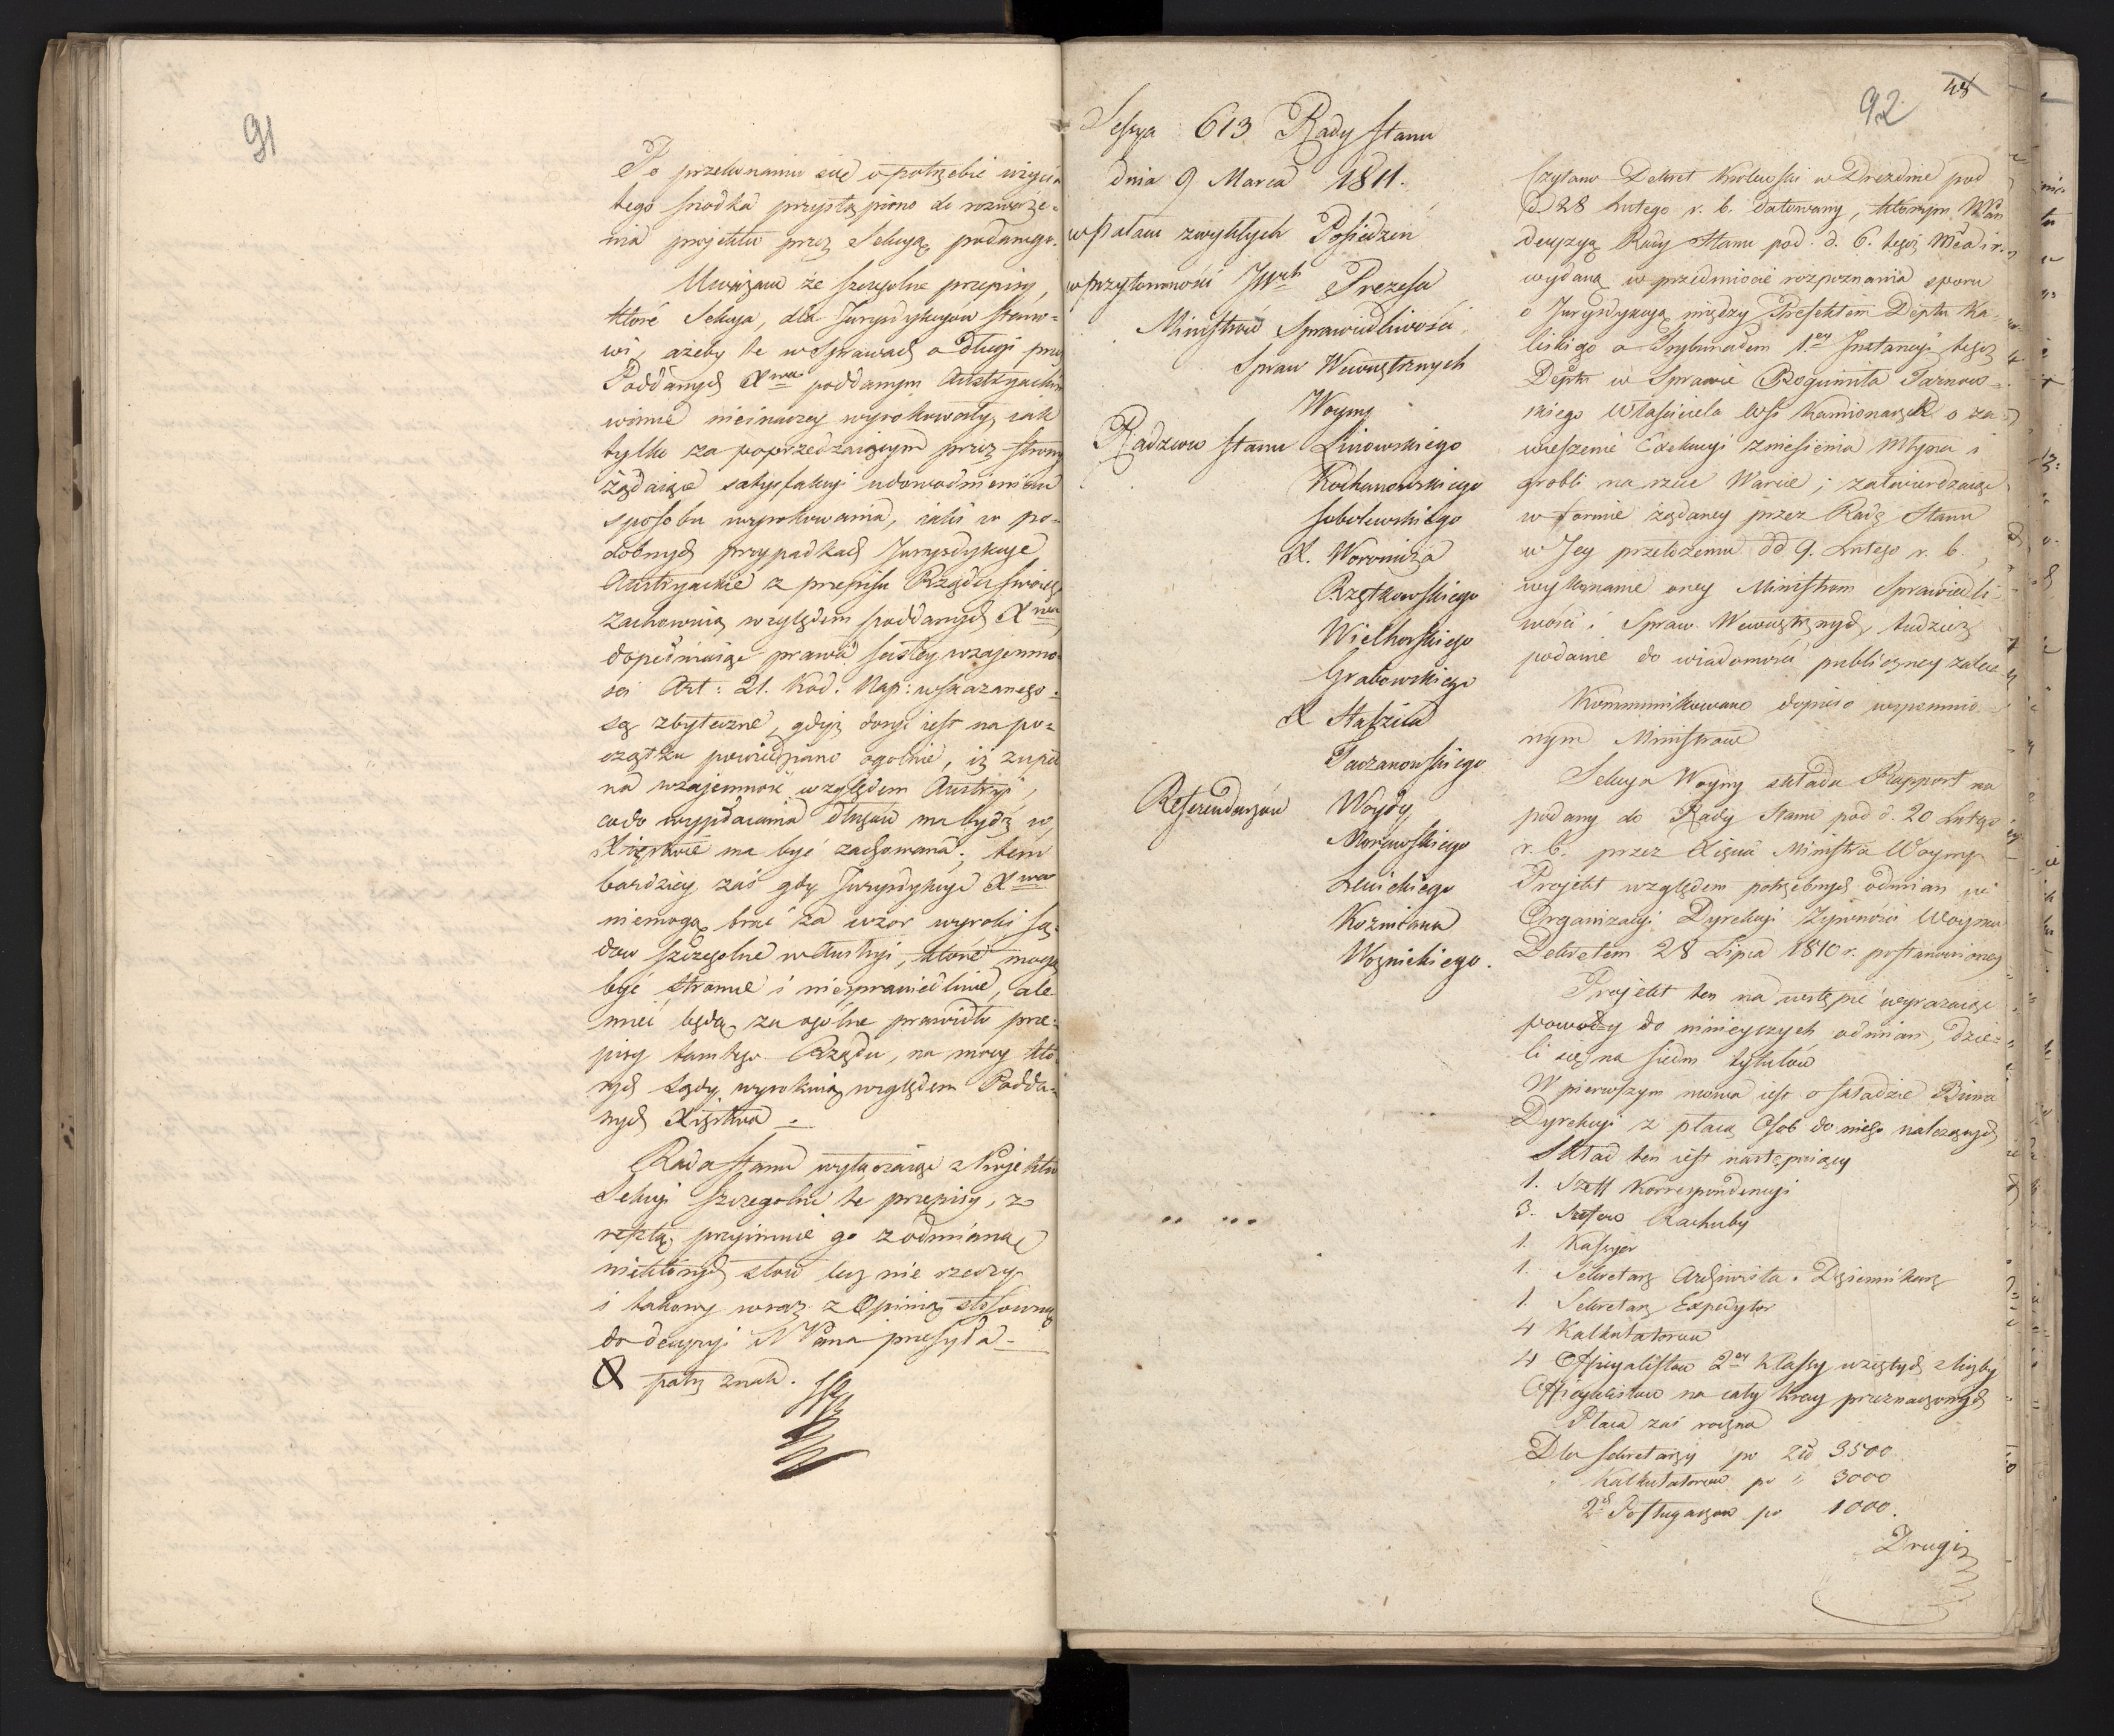 91
Po przekonaniu się o potrzebie użycia
tego środka przystąpiono do rozważe-
nia projektu przez Sekcyą podanego.
Uważano że szczegolne przepisy,
które Sekcya, dla Jurysdykcyow stano-
wi, ażeby te w Sprawach o długi przez
Poddanych Xwa poddanym Austryackim
winne nieinaczey wyrokowały, iak
tylko za poprzedzaiącym przez strony
żądaiące satysfakcyi udowodnieniem
sposobu wyrokowania, iaki w po-
dobnych przypadkach Jurysdykcye
Austryackie z przepisu Rządu swoiego
zachowuią względem poddanych Xwa
dopełniaiąc prawa scisłey wzajemno-
sci Art: 21. Kod: Nap: wskazanego -
są zbyteczne, gdyż dosyć iest na po-
czątku powiedziano ogolnie, iż zupeł
na wzajemność względem Austryi,
co do wypłacania długów ma bydź w
Xięstwie ma być zachowana; tém
bardziey zaś gdy Jurysdykcye Xwa
niemogą brać za wzor wyroki Są-
dow szczegolne w Austryi, które mogą
być stronne i niesprawiedliwe, ale
mieć będą za ogólne prawidło prze-
pisy tamtego Rządu, na mocy któ
rych Sądy wyrokuią względem Podda-
nych Xięstwa -
Rada Stanu wyłączaiąc z Projektu
Sekcyi szczegolne te przepisy, z
resztą przyimuie go z odmianą
niektórych słow lecz nie rzeczy
i takowy wraz z Opinią stosowną
do decyzyi N Pana przesyła -
patrz znak.
92
48
Sessya 613 Rady Stanu
dnia 9 Marca 1811.
w Pałacu zwykłych Posiedzeń
w przytomności JWch Prezesa
Ministrow Sprawiedliwości
Spraw Wewnętrznych
Woyny
Radzcow Stanu Linowskiego
Kochanowskiego
Sobolewskiego
X. Woronicza
Rzątkowskiego
Wielhorskiego
Grabowskiego
X Staszica
Taczanowskiego
Referendarzow Woydy
Morawskiego
Łuickiego
Kozmiana
Woznickiego.
Czytano Dekret Krolewski w Dreźdnie pod
d 28 Lutego r. b. datowany, którym N Pan
decyzyą Rady Stanu pod d. 6. tegoż Mca i r.
wydaną w przedmiocie rozpoznania sporu
o Jurysdykcyą między Prefektem Deptu Ka-
liskiego a Trybunałem 1.ey Instancyi tegoż
Deptu w Sprawie Xsgumuta Tarnow-
skiego Własciciela Wsi Kamionacz o za-
wieszenie Exekucyi zniesienia Młyna i
grobli na rzece Warcie; zatwierdzaiąc
w formie żądaney przez Radę Stanu
w Jey przełożeniu dd 9. Lutego r. b.,
wykonanie oney Ministrom Sprawiedli-
wości i Spraw Wewnętrznych, tudzież
podanie do wiadomości publiczney zaleca
Kommunikowano dopiero wspomnio-
nym Ministrom
Sekcya Woyny składa Rapport na
podany do Rady Stanu pod d. 20 Lutego
r. b. przez Xięcia Ministra Woyny
Projekt względem potrzebnych odmian w
Organizacyi Dyrekcyi Żywności Woyska
Dekretem 28 Lipca 1810 r. postanowioney
Projekt ten na wstępie wyrażaiąc
powody do ninieyszych odmian, dzie-
li się na siedm tytułów
W pierwszym mowa iest o składzie Biura
Dyrekcyi z płacą Osob do niego należących
Skład ten iest następuiący
1. Szeff Korrespondencyi
3. Szefow Rachuby
1. Kassyer
1. Sekretarz Archiwista i Dziennikarz
1. Sekretarz Expedytor
4 Kalkulatorow
4 Officyalistow 2ey Klassy wziętych z liczby
Officyalistow na cały kray przeznaczonych
Płaca zaś roczna
Dla Sekretarzy po Złł 3500
" Kalkulatorow po " 3000
2ch Posługaczow po 1000.
Drugi